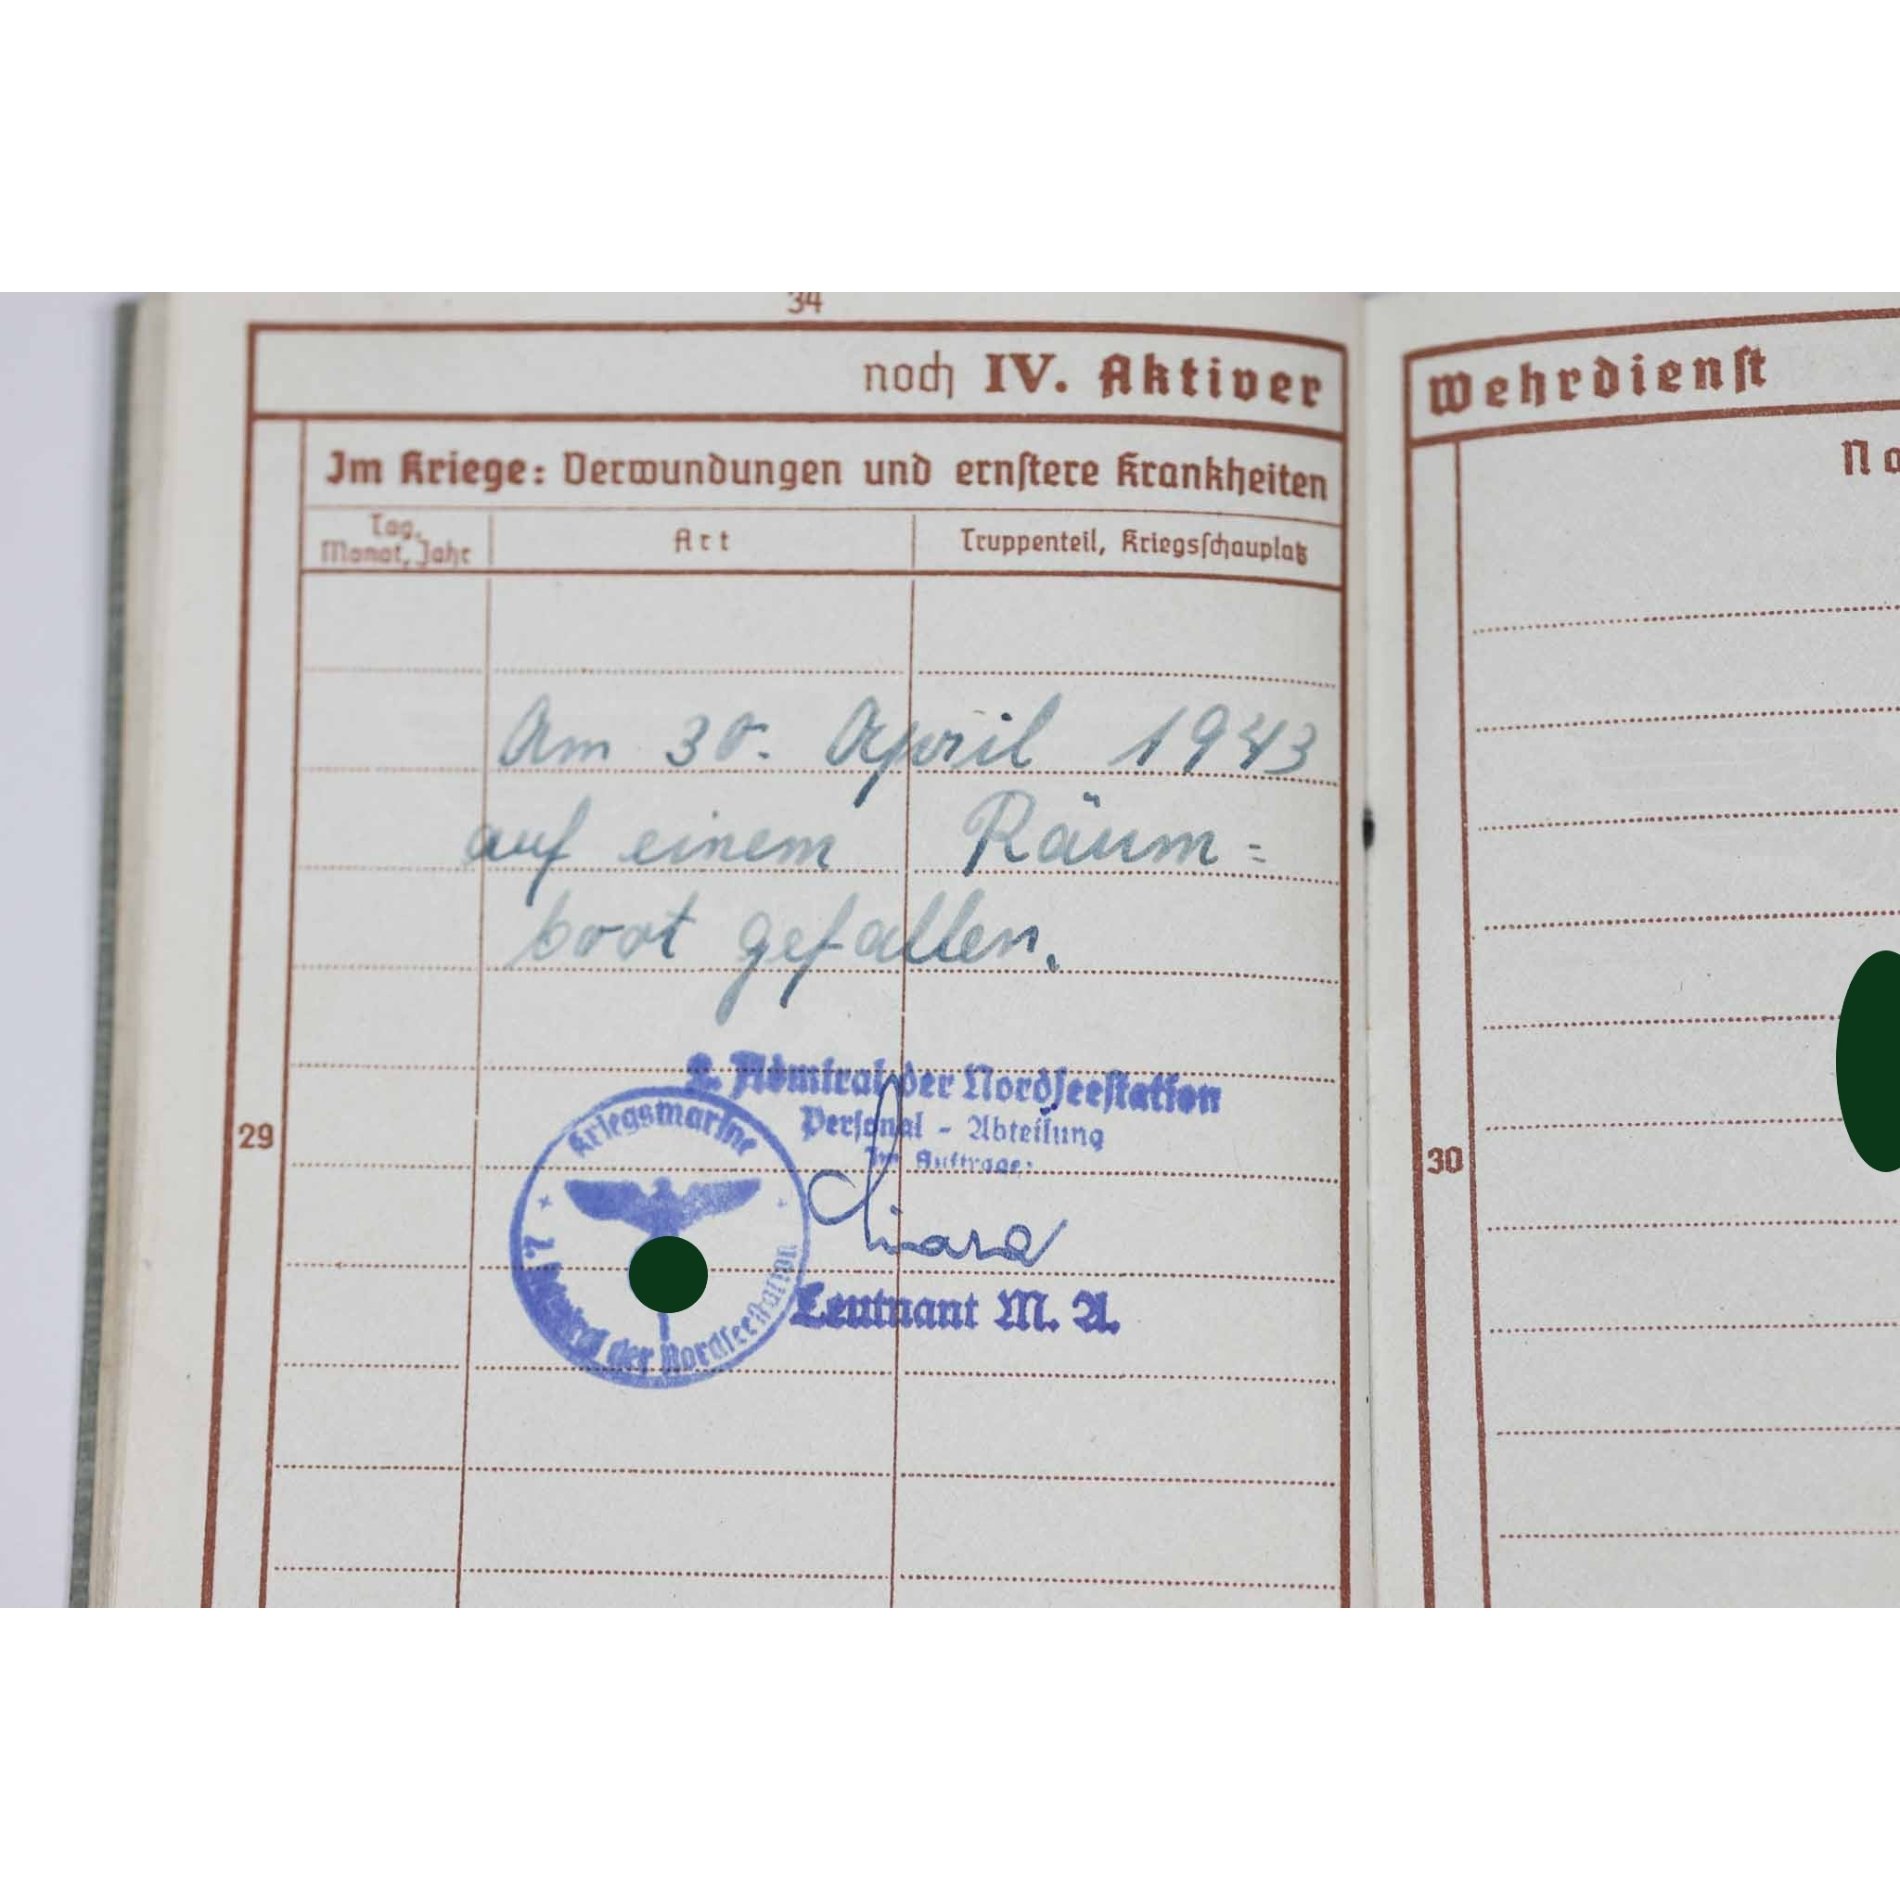 34
noch IV. Aktiver
Im Kriege: Verwundungen und ernstere Krankheiten
Tag, Monat, Jahr
Art
Truppenteil, Kriegsschauplatz
Am 30. April 1943
auf einem Räum=
boot gefallen.
Admiral der Nordseestation
Personal - Abteilung
Im Auftrage:
Leutnant M. A.
Kriegsmarine
der Nordseestation
29
Wehrdienst
No
30